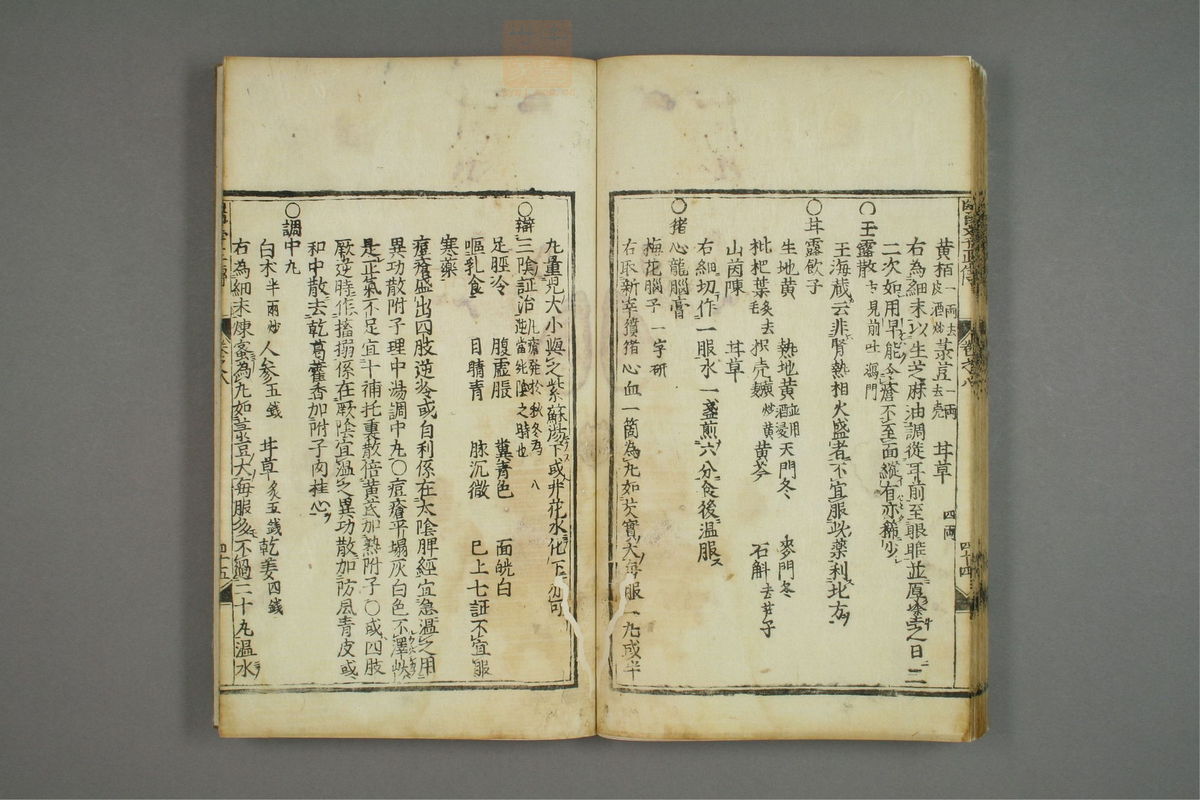 黄栢一両去皮酒炒 菉豆一両去壳 甘草四両
右為細末以生芝麻油調從耳前至眼眶並厚塗之日二
二次如用早能令瘡不至面縱有亦稀少
○玉露散方見前吐瀉門
王海蔵云非腎熱相火盛者不宜服此薬利北方
○甘露飲子
生地黄 熟地黄並用酒浸 天門冬 麥門冬
枇杷葉炙去毛 枳壳麩炒黄 黄芩 石斛去芦子
山茵陳 甘草
右細切作一服水一盞煎六分食後温服
○猪心龍腦膏
梅花腦子一字研
右取新宰獖猪心血一箇為丸如芡實大每服一丸或半
四十四
丸量児大小與之紫蘇湯下或井花水化下亦可
○辯三陰証治凡瘡発於秋冬為逆當純陰之時也
足脛冷 腹虚脹 糞青色 面㿠白
嘔乳食 目睛青 脉沉微 已上七証不宜服
寒藥
痘瘡盛出四肢逆冷或自利係在太陰脾經宜急温之用
異功散附子理中湯調中丸○痘瘡平塌灰白色不澤
是正氣不足宜十補托裏散倍黄芪加熟附子○或四肢
厥逆時作搐搦係在厥陰宜温之異功散加防風青皮或
和中散去乾葛藿香加附子肉桂心
○調中丸
白木半両炒 人参五錢 甘草炙五錢 乾姜四錢
右為細末煉蜜為丸如菉豆大每服多不過二十丸温水
四十五